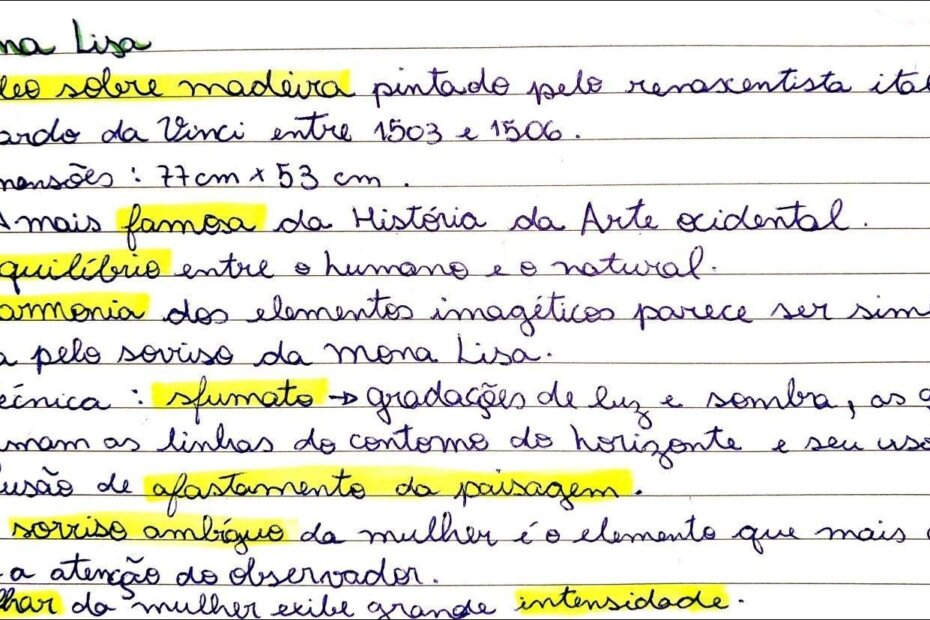 na Lisa
leo sobre madeira pintado pelo renascentista ita
ardo da Vinci entre 1503 e 1506.
mensões : 77cm x 53 cm .
A mais famosa da História da Arte ocidental.
quilíbrio entre o humano e o natural.
armonia dos elementos imagéticos parece ser sim
a pelo sorriso da mona Lisa.
écnica : sfumato → gradações de luz e sombra, as
mam as linhas do contorno do horizonte e seu uso
lusão de afastamento da paisagem.
sorriso ambíguo da mulher é o elemento que mais
a atenção do observador.
lhar da mulher exibe grande intensidade.